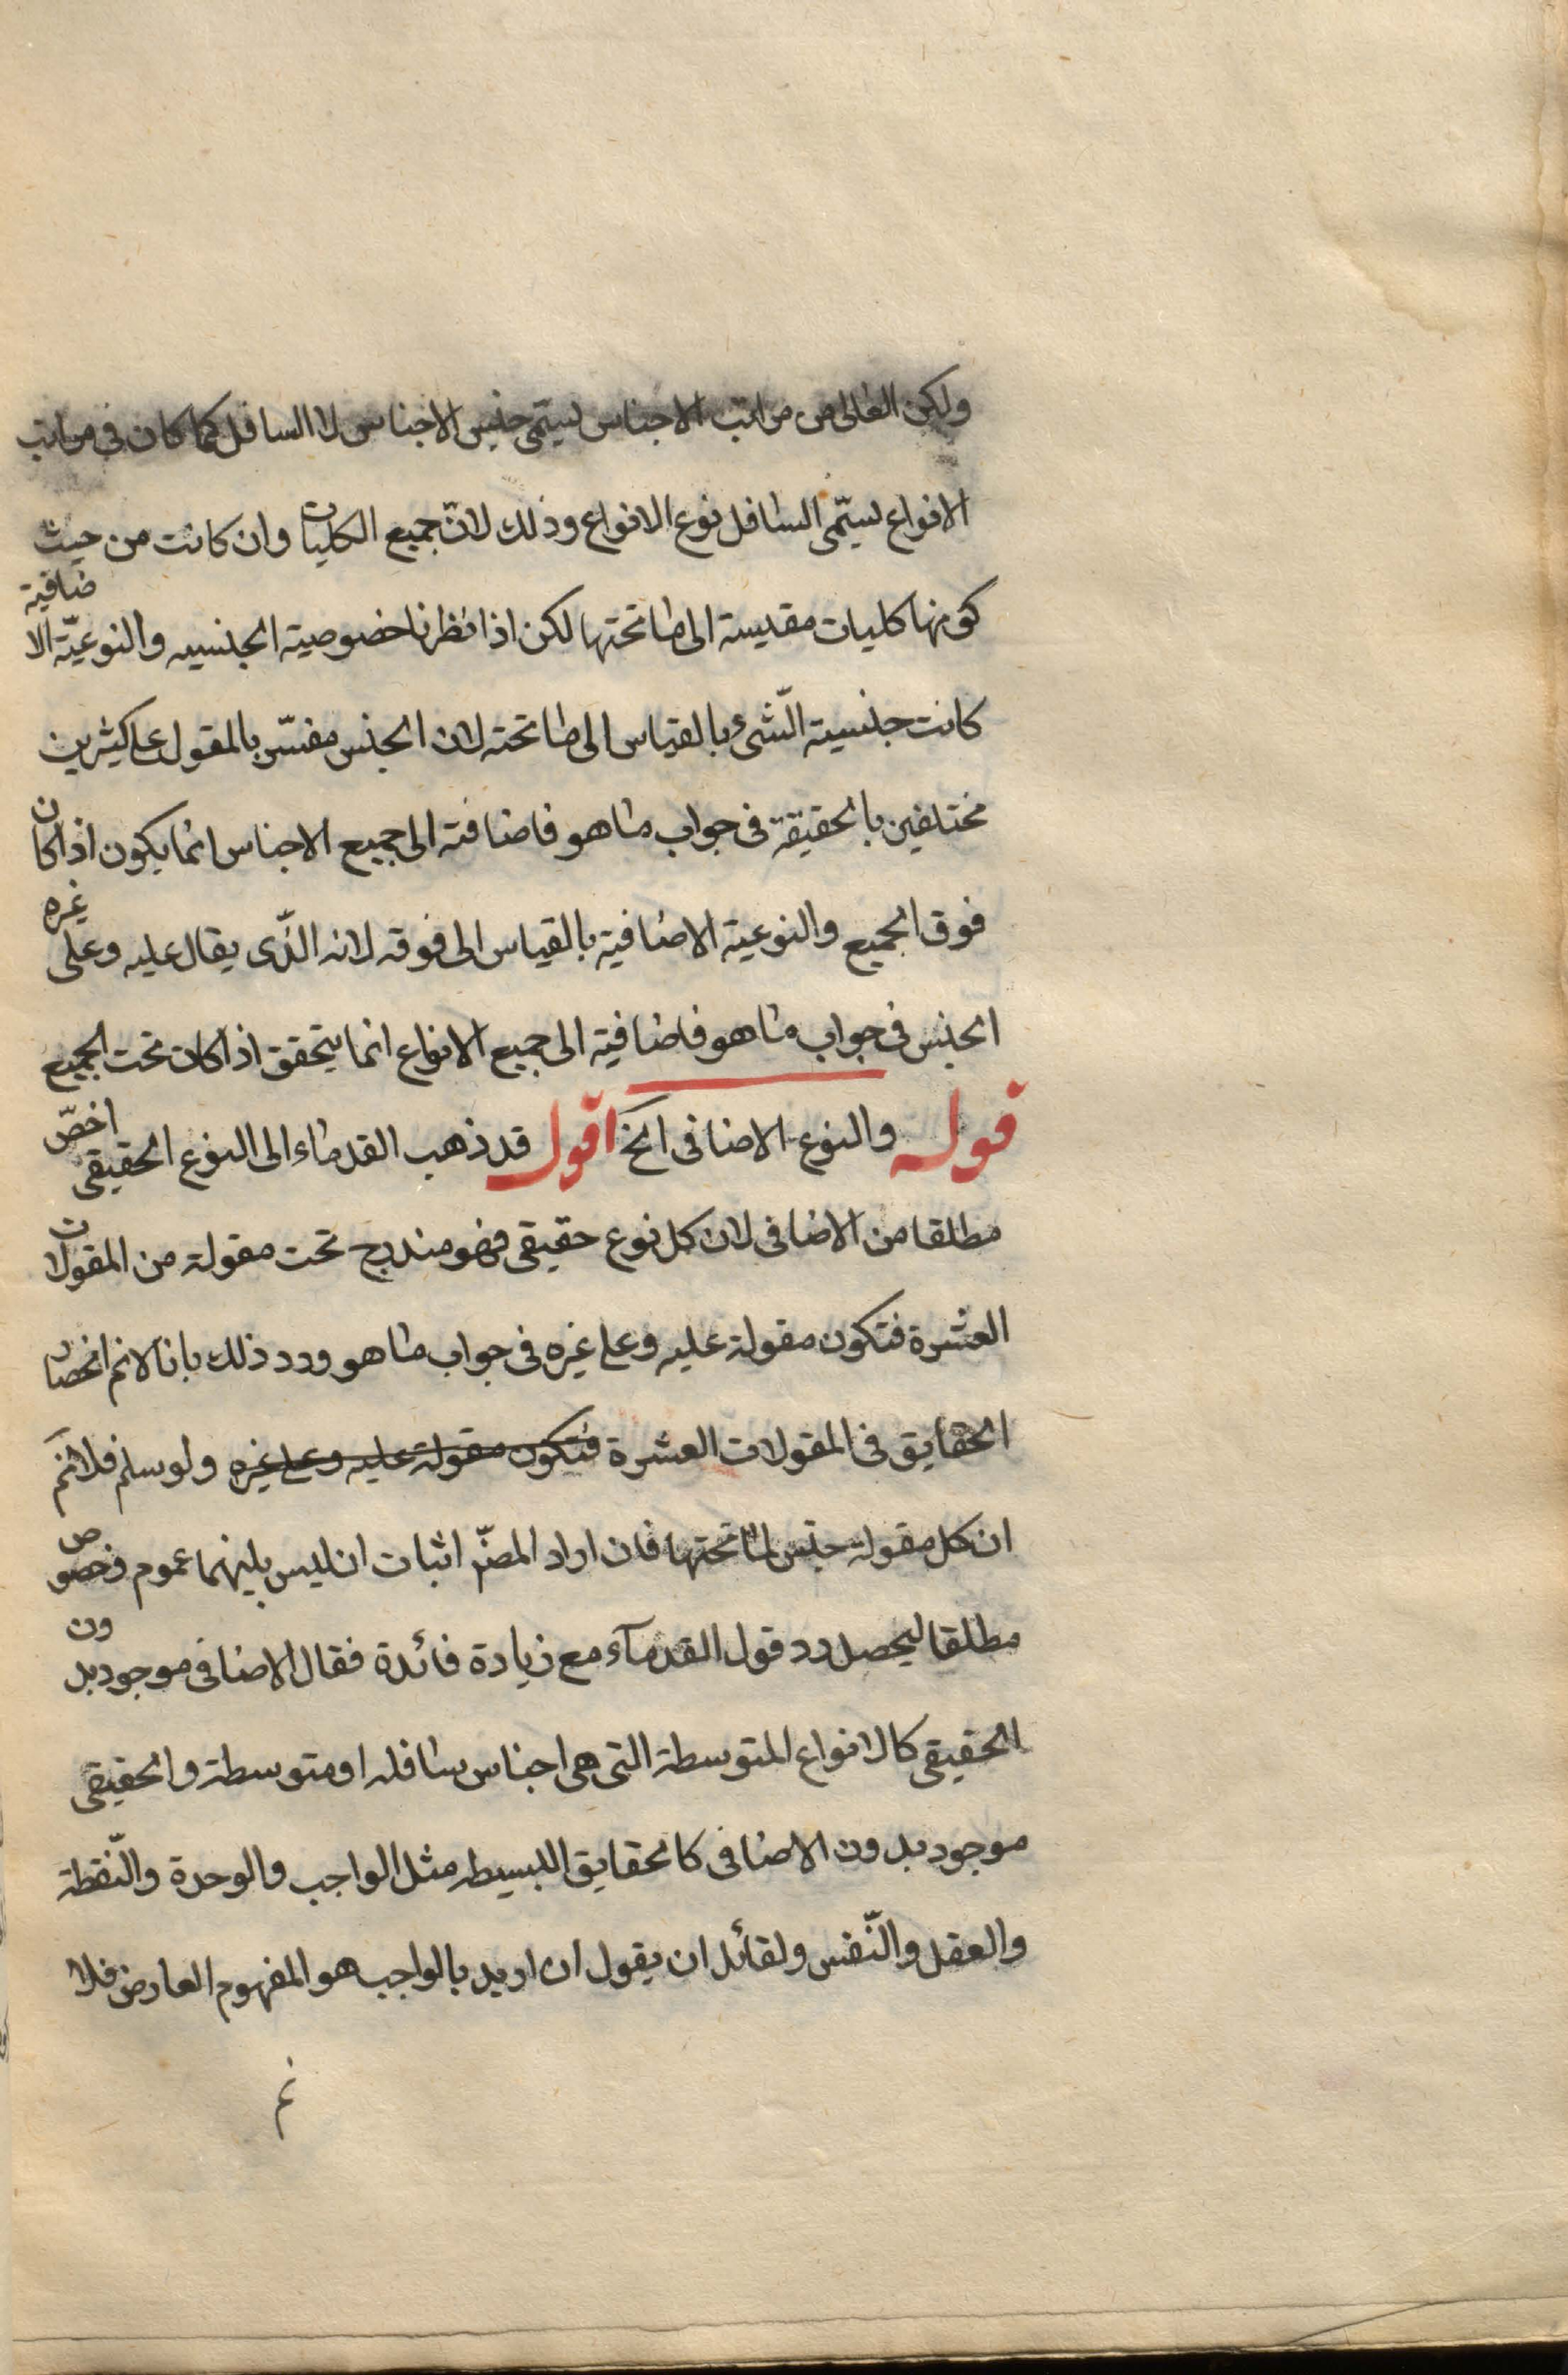 ولكن العالى من مراتب الاجناس يسمّى جنس الاجناس لا السافل كما كان فى مراتب
الانواع يسمّى السافل نوع الانواع وذلك لانّ جميع الكليات وان كانت من حيث
كونها كليات مقيسة الى ما تحتها لكن اذا نظرنا خصوصية الجنسيه والنوعيّة الاضافية
كانت جنسية الشّىء بالقياس الى ما تحته لان الجنس مفسّر بالمقول على كثيرين
مختلفين بالحقيقة فى جواب ما هو فاضافته الى جميع الاجناس انما يكون اذا كان
فوق الجميع والنوعية الاضافية بالقياس الى فوقه لانه الذّى يقال عليه وعلى غيره
الجنس فى جواب ما هو فاضافية الى جميع الانواع انما يتحقق اذا كان تحت الجميع
قوله والنوع الاضافى الخ اقول قد ذهب القدماء الى النوع الحقيقى اخصّ
مطلقا من الاضافى لان كل نوع حقيقى فهو مندرج تحت مقولة من المقولات
العشرة فتكون مقولة عليه وعلى غيره فى جواب ما هو ورد ذلك بانا لا نم انحصار
الحقايق فى المقولات العشرة فتكون مقولة عليه وعلى غيره ولو سلم فلا نم
ان كل مقولة جنس لما تحتها فان اراد المصّ اثبات ان ليس بينهما عموم وخصوص
مطلقا ليحصل رد قول القدمآء مع زيادة فائدة فقال الاضافى موجود بدون
الحقيقى كالانواع المتوسطة التى هى اجناس سافله او متوسطة والحقيقى
موجود بدون الاضافى كالحقايق البسيطه مثل الواجب والوحدة والنّقطة
والعقل والنّفس ولقائل ان يقول ان اريد بالواجب هو المفهوم العارض فلا
نم